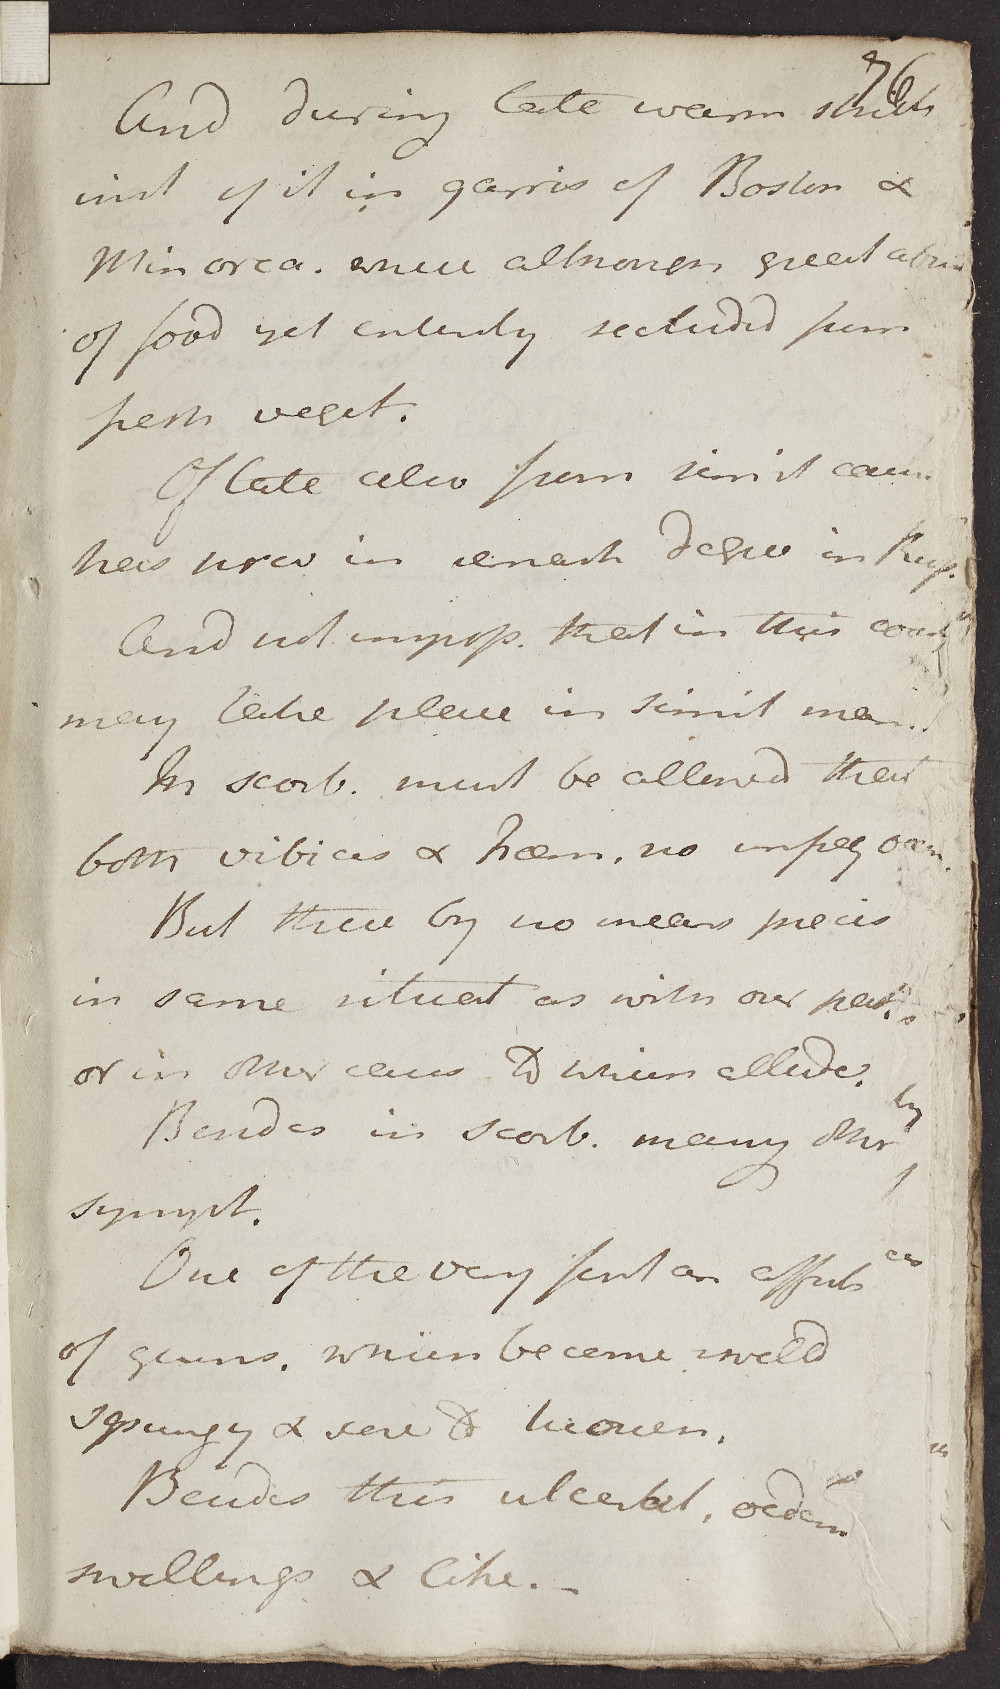 76
And during late warm
inst of it in garris of Boston &
Minorca. where although great abun
of food yet entirely secluded from
fresh veget.
Of late also from simil caus.
has prev in remark degree in Russ.
And not imposs. that in this coun
may take place in simil man.
In scorb. must be allowed that
both vibices & hæm. no unfreq occur.
But these by no means precis
in same situat as with our pat.
or in other cases to which allude.
Besides in scorb. many other
sympt.
One of the very first an affect
of gums. which become swelld
spungy & sore to
Besides this ulcerat, oedem
swellings & like. -